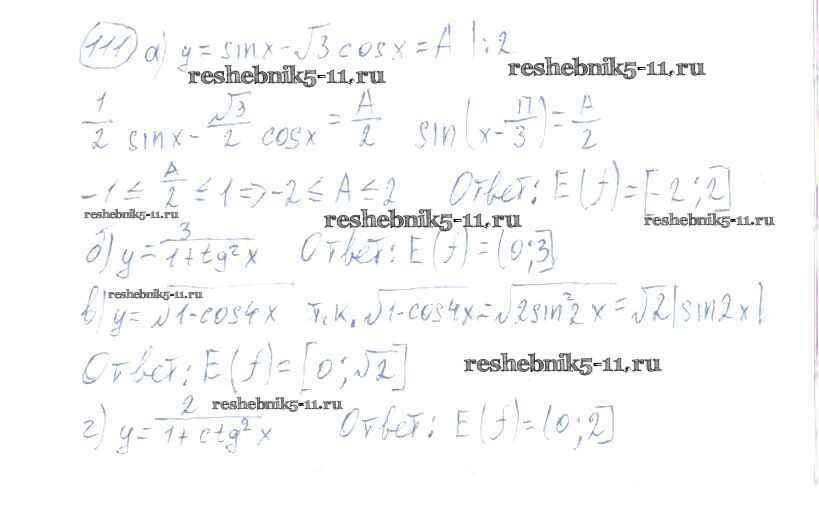 111 а) y = sinx - √3 cosx = A |:2
reshebnik5-11.ru reshebnik5-11.ru
1/2 sinx - √3/2 cosx = A/2 sin(x - П/3) = A/2
-1 ≤ A/2 ≤ 1 => -2 ≤ A ≤ 2 Ответ: E(f) = [-2; 2]
reshebnik5-11.ru reshebnik5-11.ru reshebnik5-11.ru
б) y = 3/(1+tg²x) Ответ: E(f) = (0; 3]
reshebnik5-11.ru
в) y = √(1-cos4x) т.к. √(1-cos4x) = √(2sin²2x) = √2|sin2x|
Ответ: E(f) = [0; √2]
reshebnik5-11.ru
reshebnik5-11.ru
г) y = 2/(1+ctg²x) Ответ: E(f) = (0; 2]